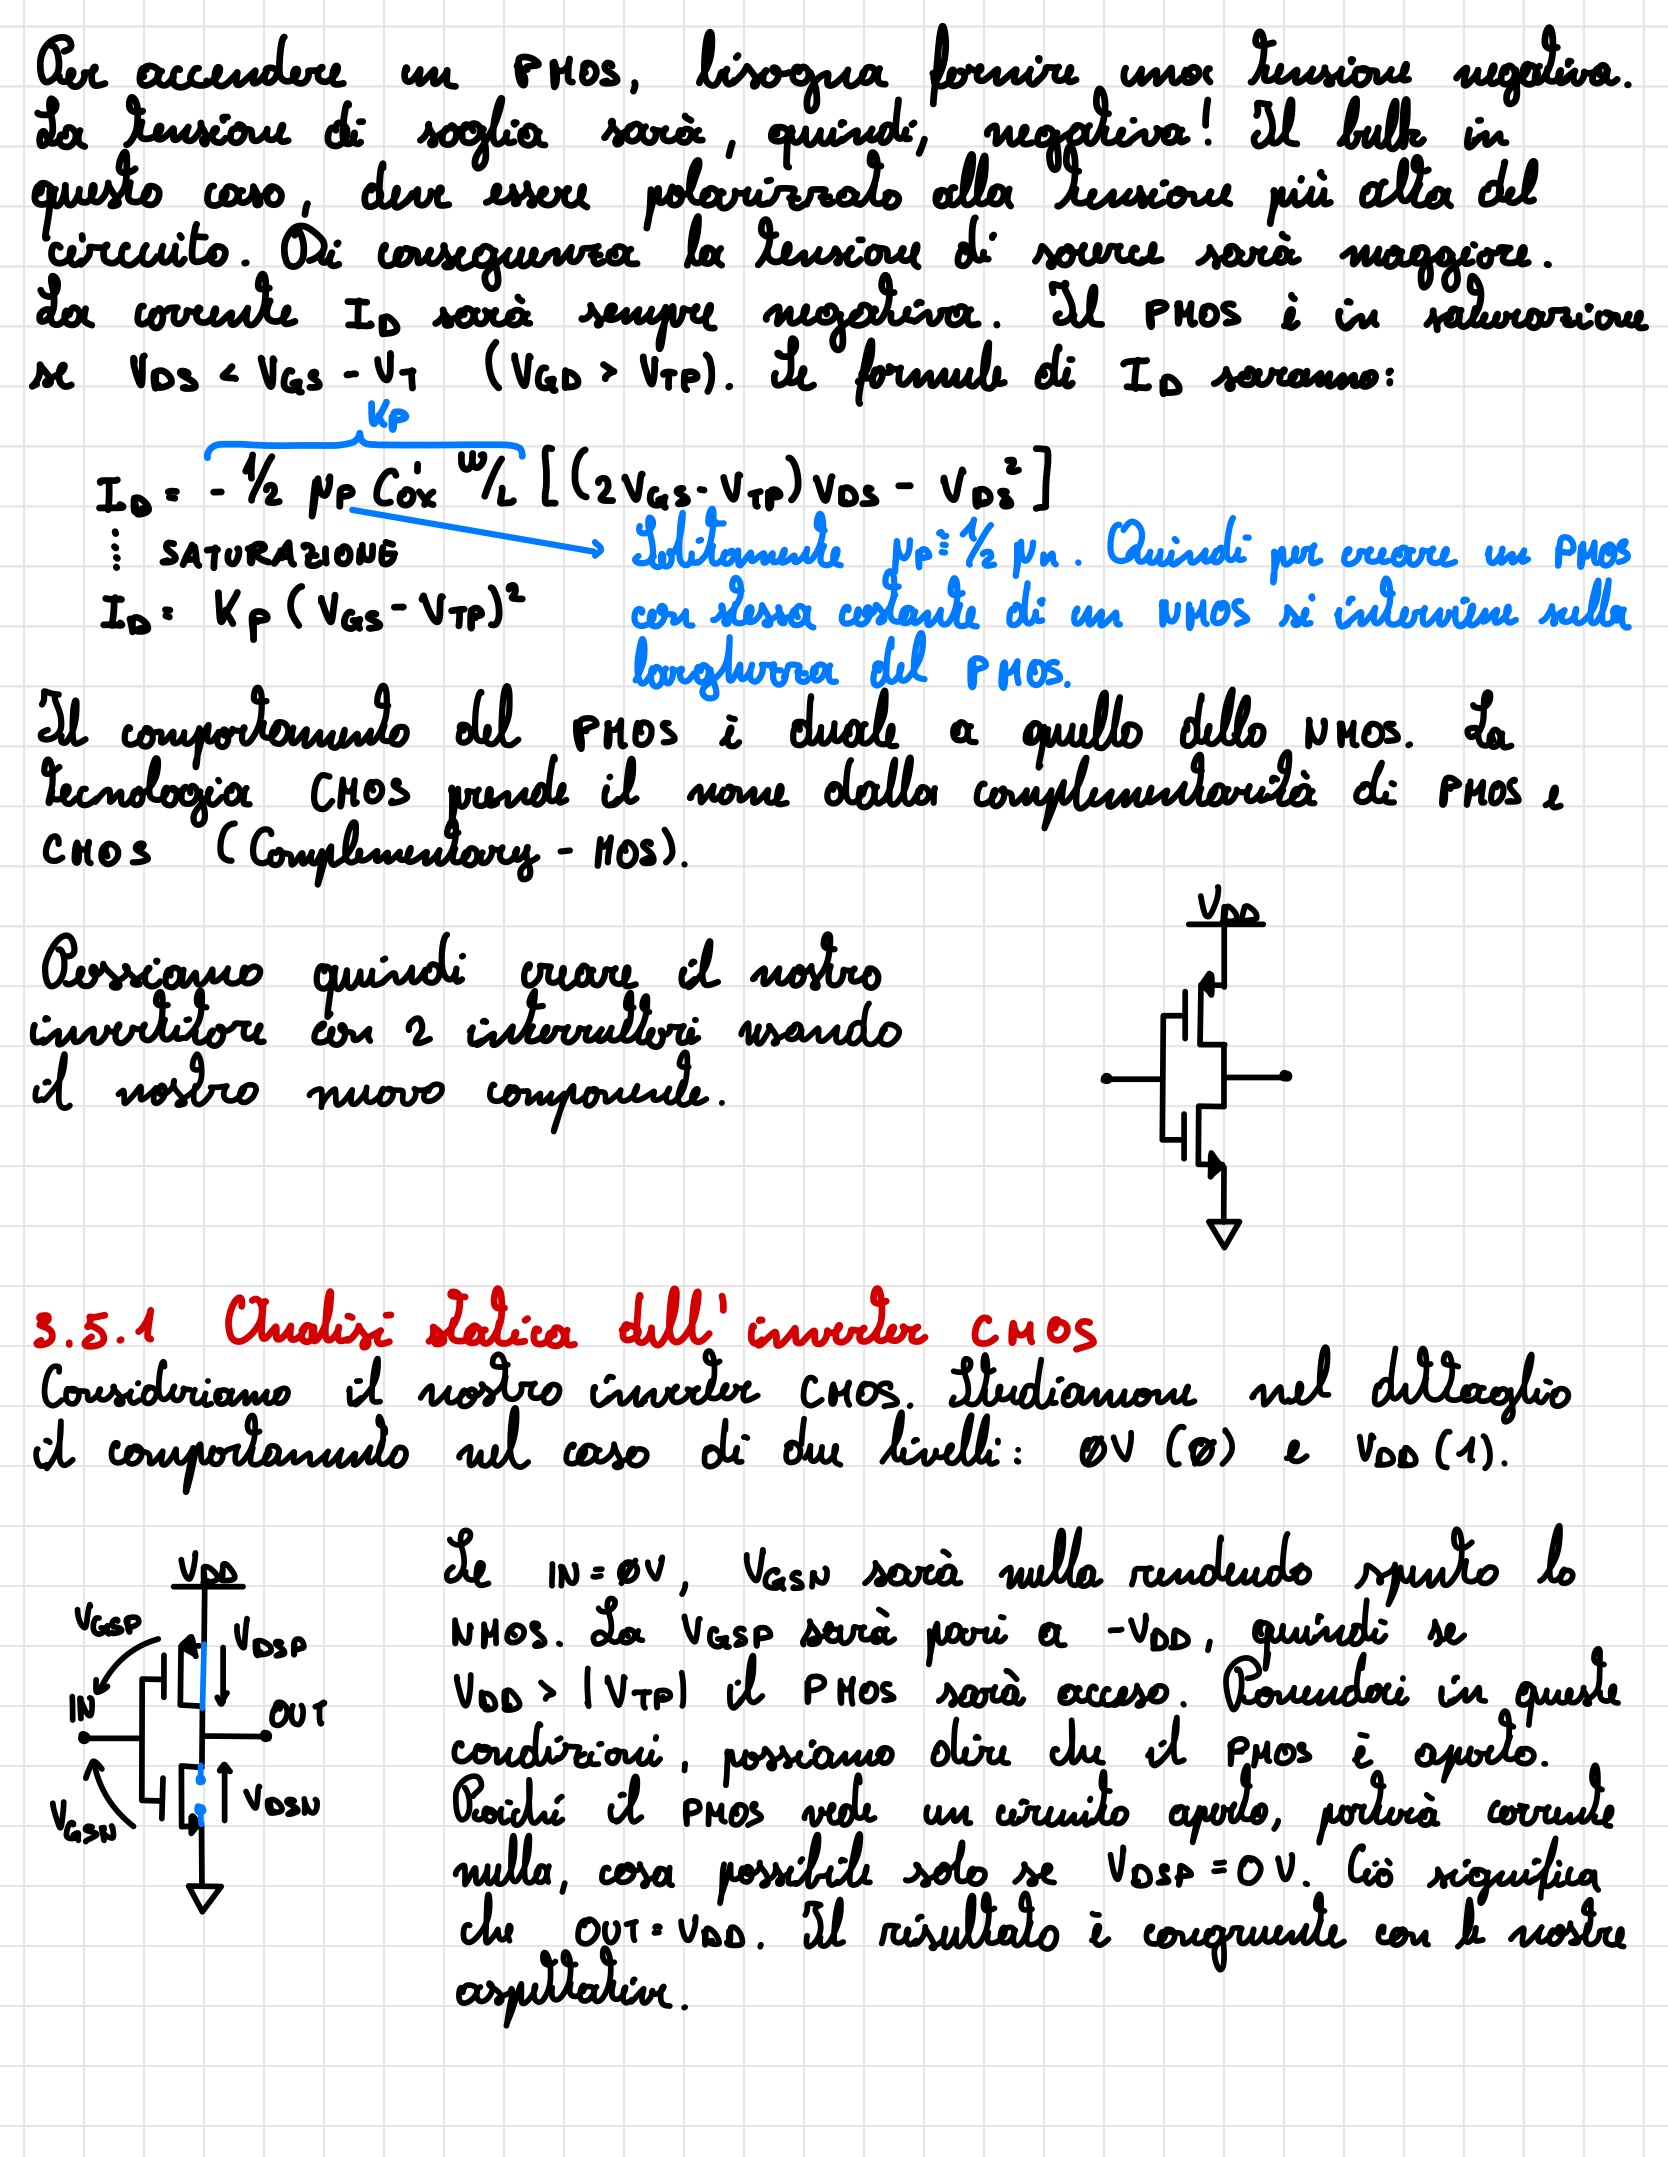 Per accendere un PMOS, bisogna fornire una tensione negativa.
La tensione di soglia sarà, quindi, negativa! Il bulk in
questo caso, deve essere polarizzato alla tensione più alta del
circuito. Di conseguenza la tensione di source sarà maggiore.
La corrente I_D sarà sempre negativa. Il PMOS è in saturazione
se V_DS < V_GS - V_T (V_GD > V_TP). Le formule di I_D saranno:
K_P
I_D = - 1/2 μ_P C'ox W/L [(2V_GS - V_TP) V_DS - V_DS²]
⋮ SATURAZIONE
I_D = K_P (V_GS - V_TP)²
Solitamente μ_P ≅ 1/2 μ_n. Quindi per creare un PMOS
con stessa costante di un NMOS si interviene sulla
larghezza del PMOS.
Il comportamento del PMOS è duale a quello dello NMOS. La
tecnologia CMOS prende il nome dalla complementarità di PMOS e
CMOS (Complementary - MOS).
V_DD
Possiamo quindi creare il nostro
invertitore con 2 interruttori usando
il nostro nuovo componente.
3.5.1 Analisi statica dell'inverter CMOS
Consideriamo il nostro inverter CMOS. Studiamone nel dettaglio
il comportamento nel caso di due livelli: ØV (Ø) e V_DD (1).
V_DD
V_GSP
V_DSP
IN
OUT
V_DSN
V_GSN
Se IN = ØV, V_GSN sarà nulla rendendo spento lo
NMOS. La V_GSP sarà pari a -V_DD, quindi se
V_DD > |V_TP| il PMOS sarà acceso. Ponendoci in queste
condizioni, possiamo dire che il PMOS è aperto.
Poiché il PMOS vede un circuito aperto, porterà corrente
nulla, cosa possibile solo se V_DSP = 0V. Ciò significa
che OUT = V_DD. Il risultato è congruente con le nostre
aspettative.